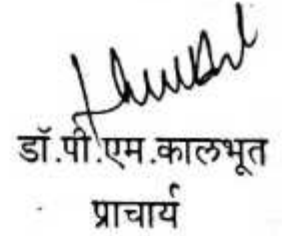 डॉ.पी.एम.कालभूत
प्राचार्य